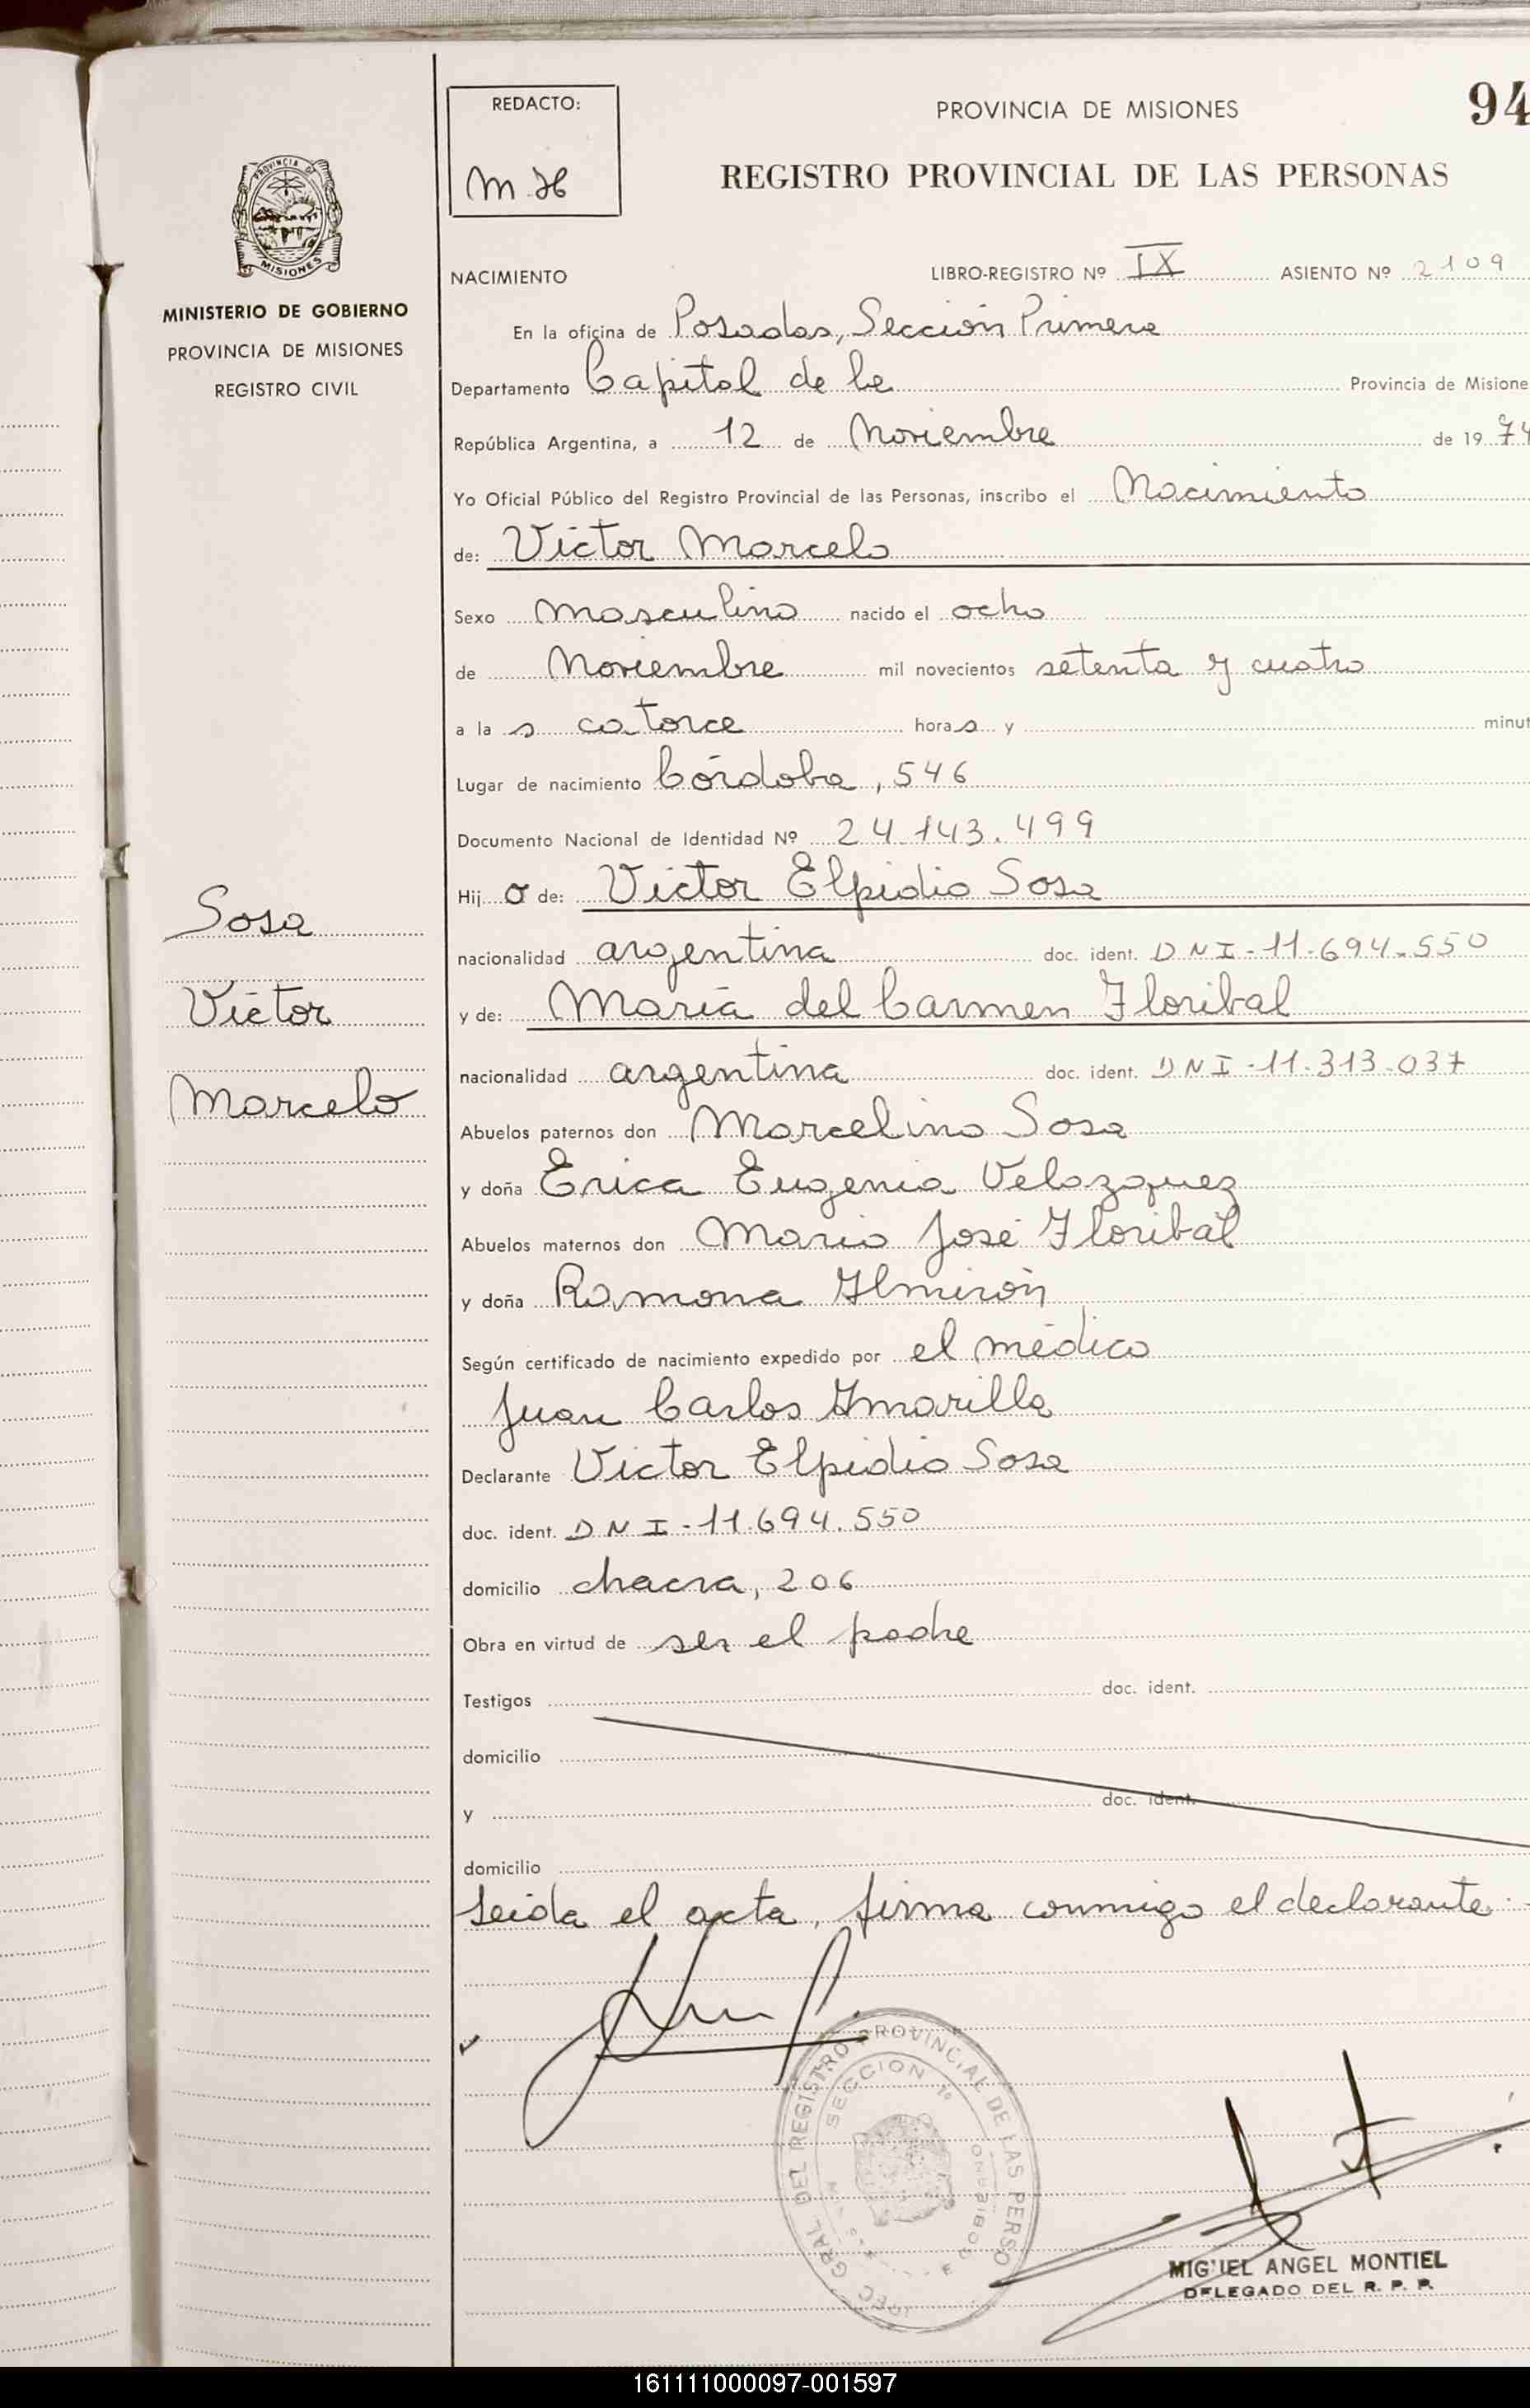 94
REDACTO:
PROVINCIA DE MISIONES
REGISTRO PROVINCIAL DE LAS PERSONAS
PROVINCIA DE
MISIONES
MINISTERIO DE GOBIERNO
PROVINCIA DE MISIONES
REGISTRO CIVIL
NACIMIENTO LIBRO-REGISTRO Nº IX ASIENTO Nº 2109
En la oficina de Posadas, Sección Primera
Departamento Capital de la Provincia de Misione
República Argentina, a 12 de Noviembre de 1974
Yo Oficial Público del Registro Provincial de las Personas, inscribo el Nacimiento
de: Víctor Marcelo
Sexo masculino nacido el ocho
de Noviembre mil novecientos setenta y cuatro
a la s catorce hora s y minut
Lugar de nacimiento Córdoba, 546
Documento Nacional de Identidad Nº 24.143.499
Hij o de: Víctor Elpidio Sosa
nacionalidad argentina doc. ident. DNI-11.694.550
y de: María del Carmen Floribal
nacionalidad argentina doc. ident. DNI-11.313.037
Abuelos paternos don Marcelino Sosa
y doña Erica Eugenia Velazquez
Abuelos maternos don Mario José Floribal
y doña Ramona Almirón
Según certificado de nacimiento expedido por el médico
Juan Carlos Amarilla
Declarante Victor Elpidio Sosa
doc. ident. DNI-11.694.550
domicilio chacra, 206
Obra en virtud de ser el padre
Testigos doc. ident.
domicilio
y doc. ident.
domicilio
Leida el acta, firma conmigo el declarante.
Sosa
Víctor
Marcelo
GRAL DEL REGISTRO PROVINCIAL DE LAS PERSO
SECCION 1º
MIGUEL ANGEL MONTIEL
DELEGADO DEL R. P. P.
161111000097-001597